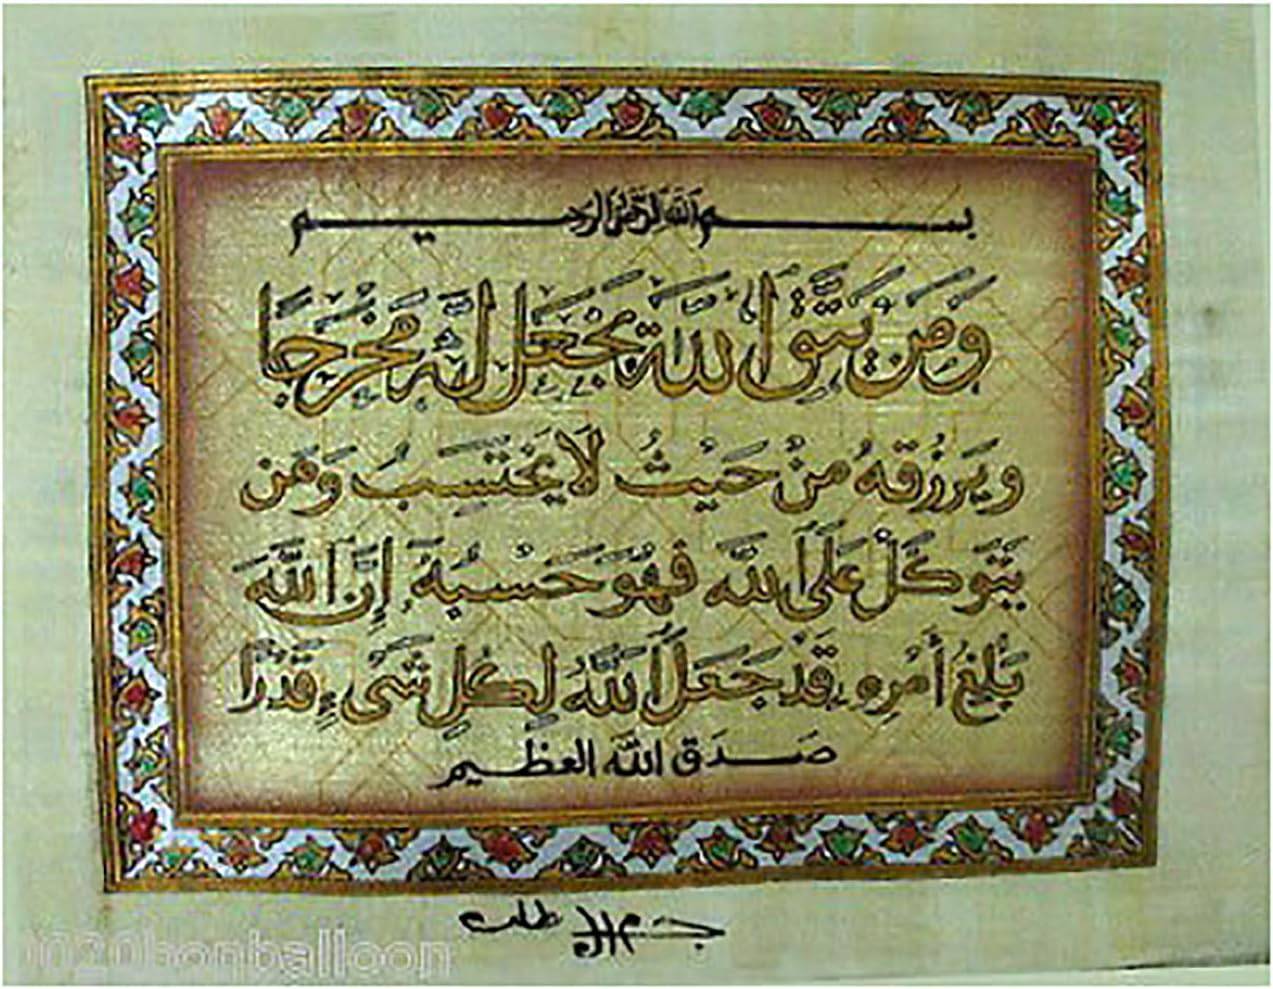 بسم الله الرحمن الرحيم
وَمَن يَتَّقِ اللَّهَ يَجْعَل لَّهُ مَخْرَجًا
وَيَرْزُقْهُ مِنْ حَيْثُ لَا يَحْتَسِبُ وَمَن
يَتَوَكَّلْ عَلَى اللَّهِ فَهُوَ حَسْبُهُ إِنَّ اللَّهَ
بَٰلِغُ أَمْرِهِ قَدْ جَعَلَ اللَّهُ لِكُلِّ شَيْءٍ قَدْرًا
صدق الله العظيم
m020bonballoon